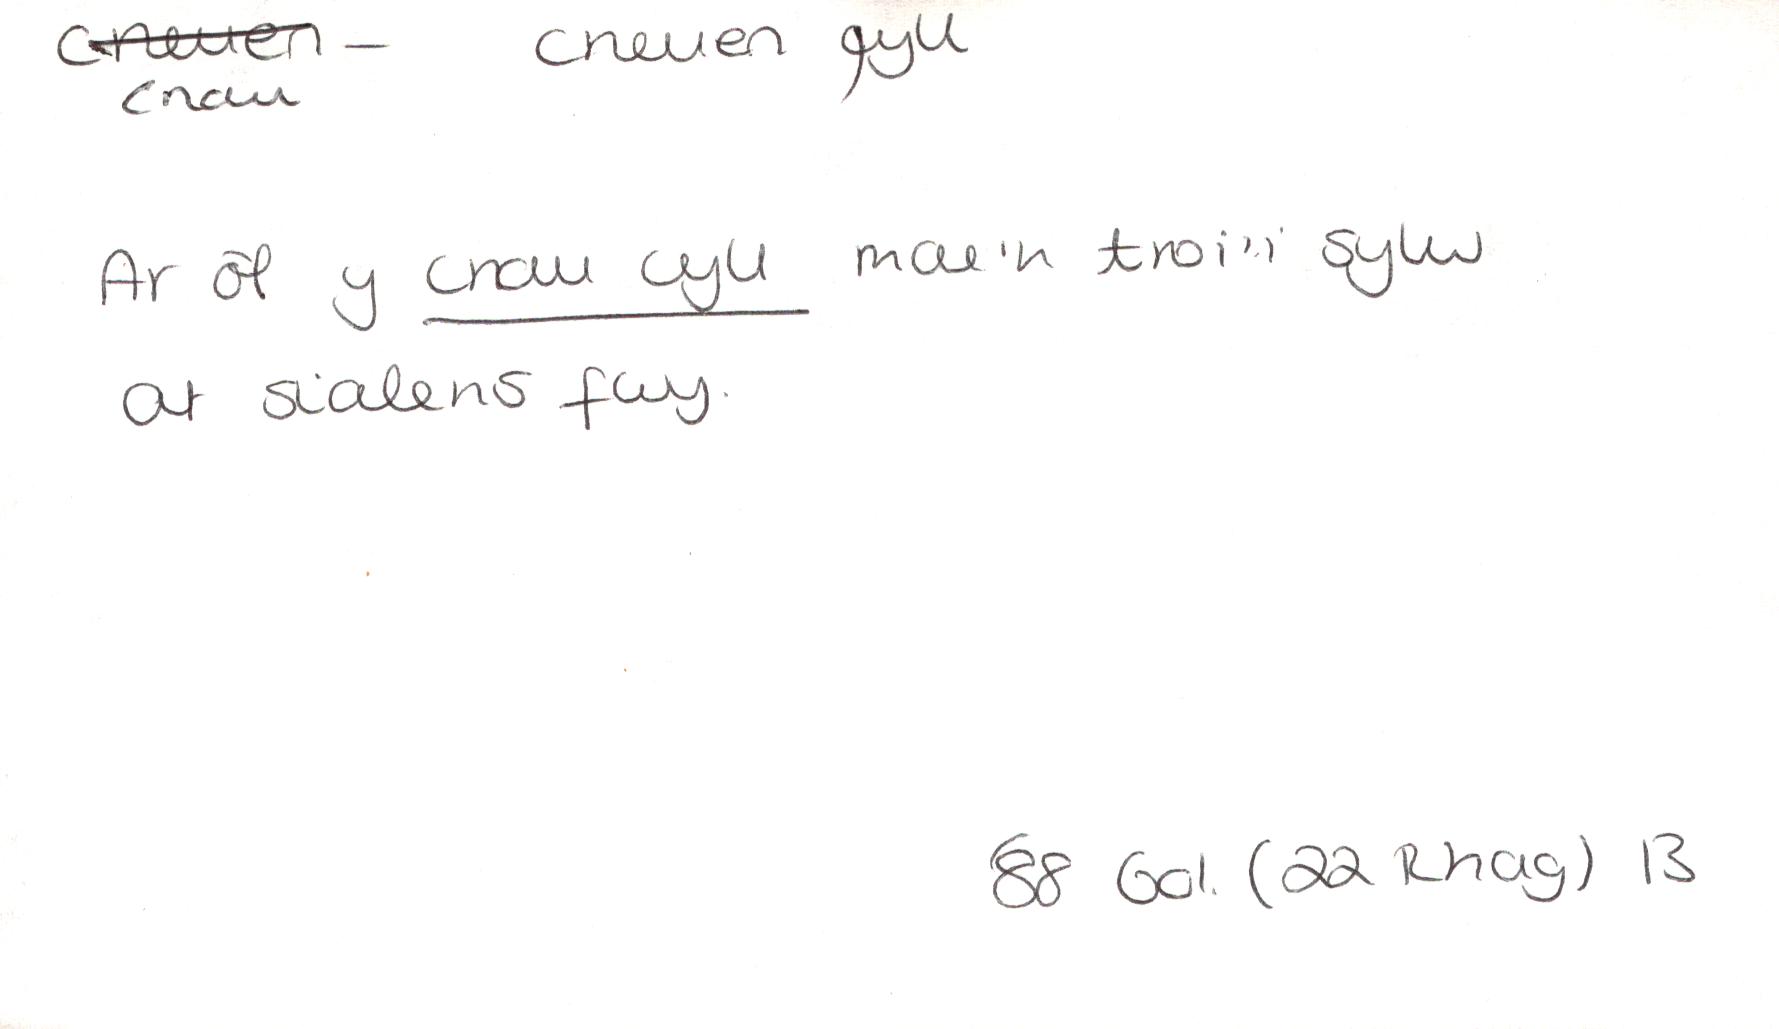 cneuen – cneuen gyll
cnau
Ar ôl y cnau cyll mae'n troi'i sylw
at sialens fwy.
88 Gol. (22 Rhag) 13